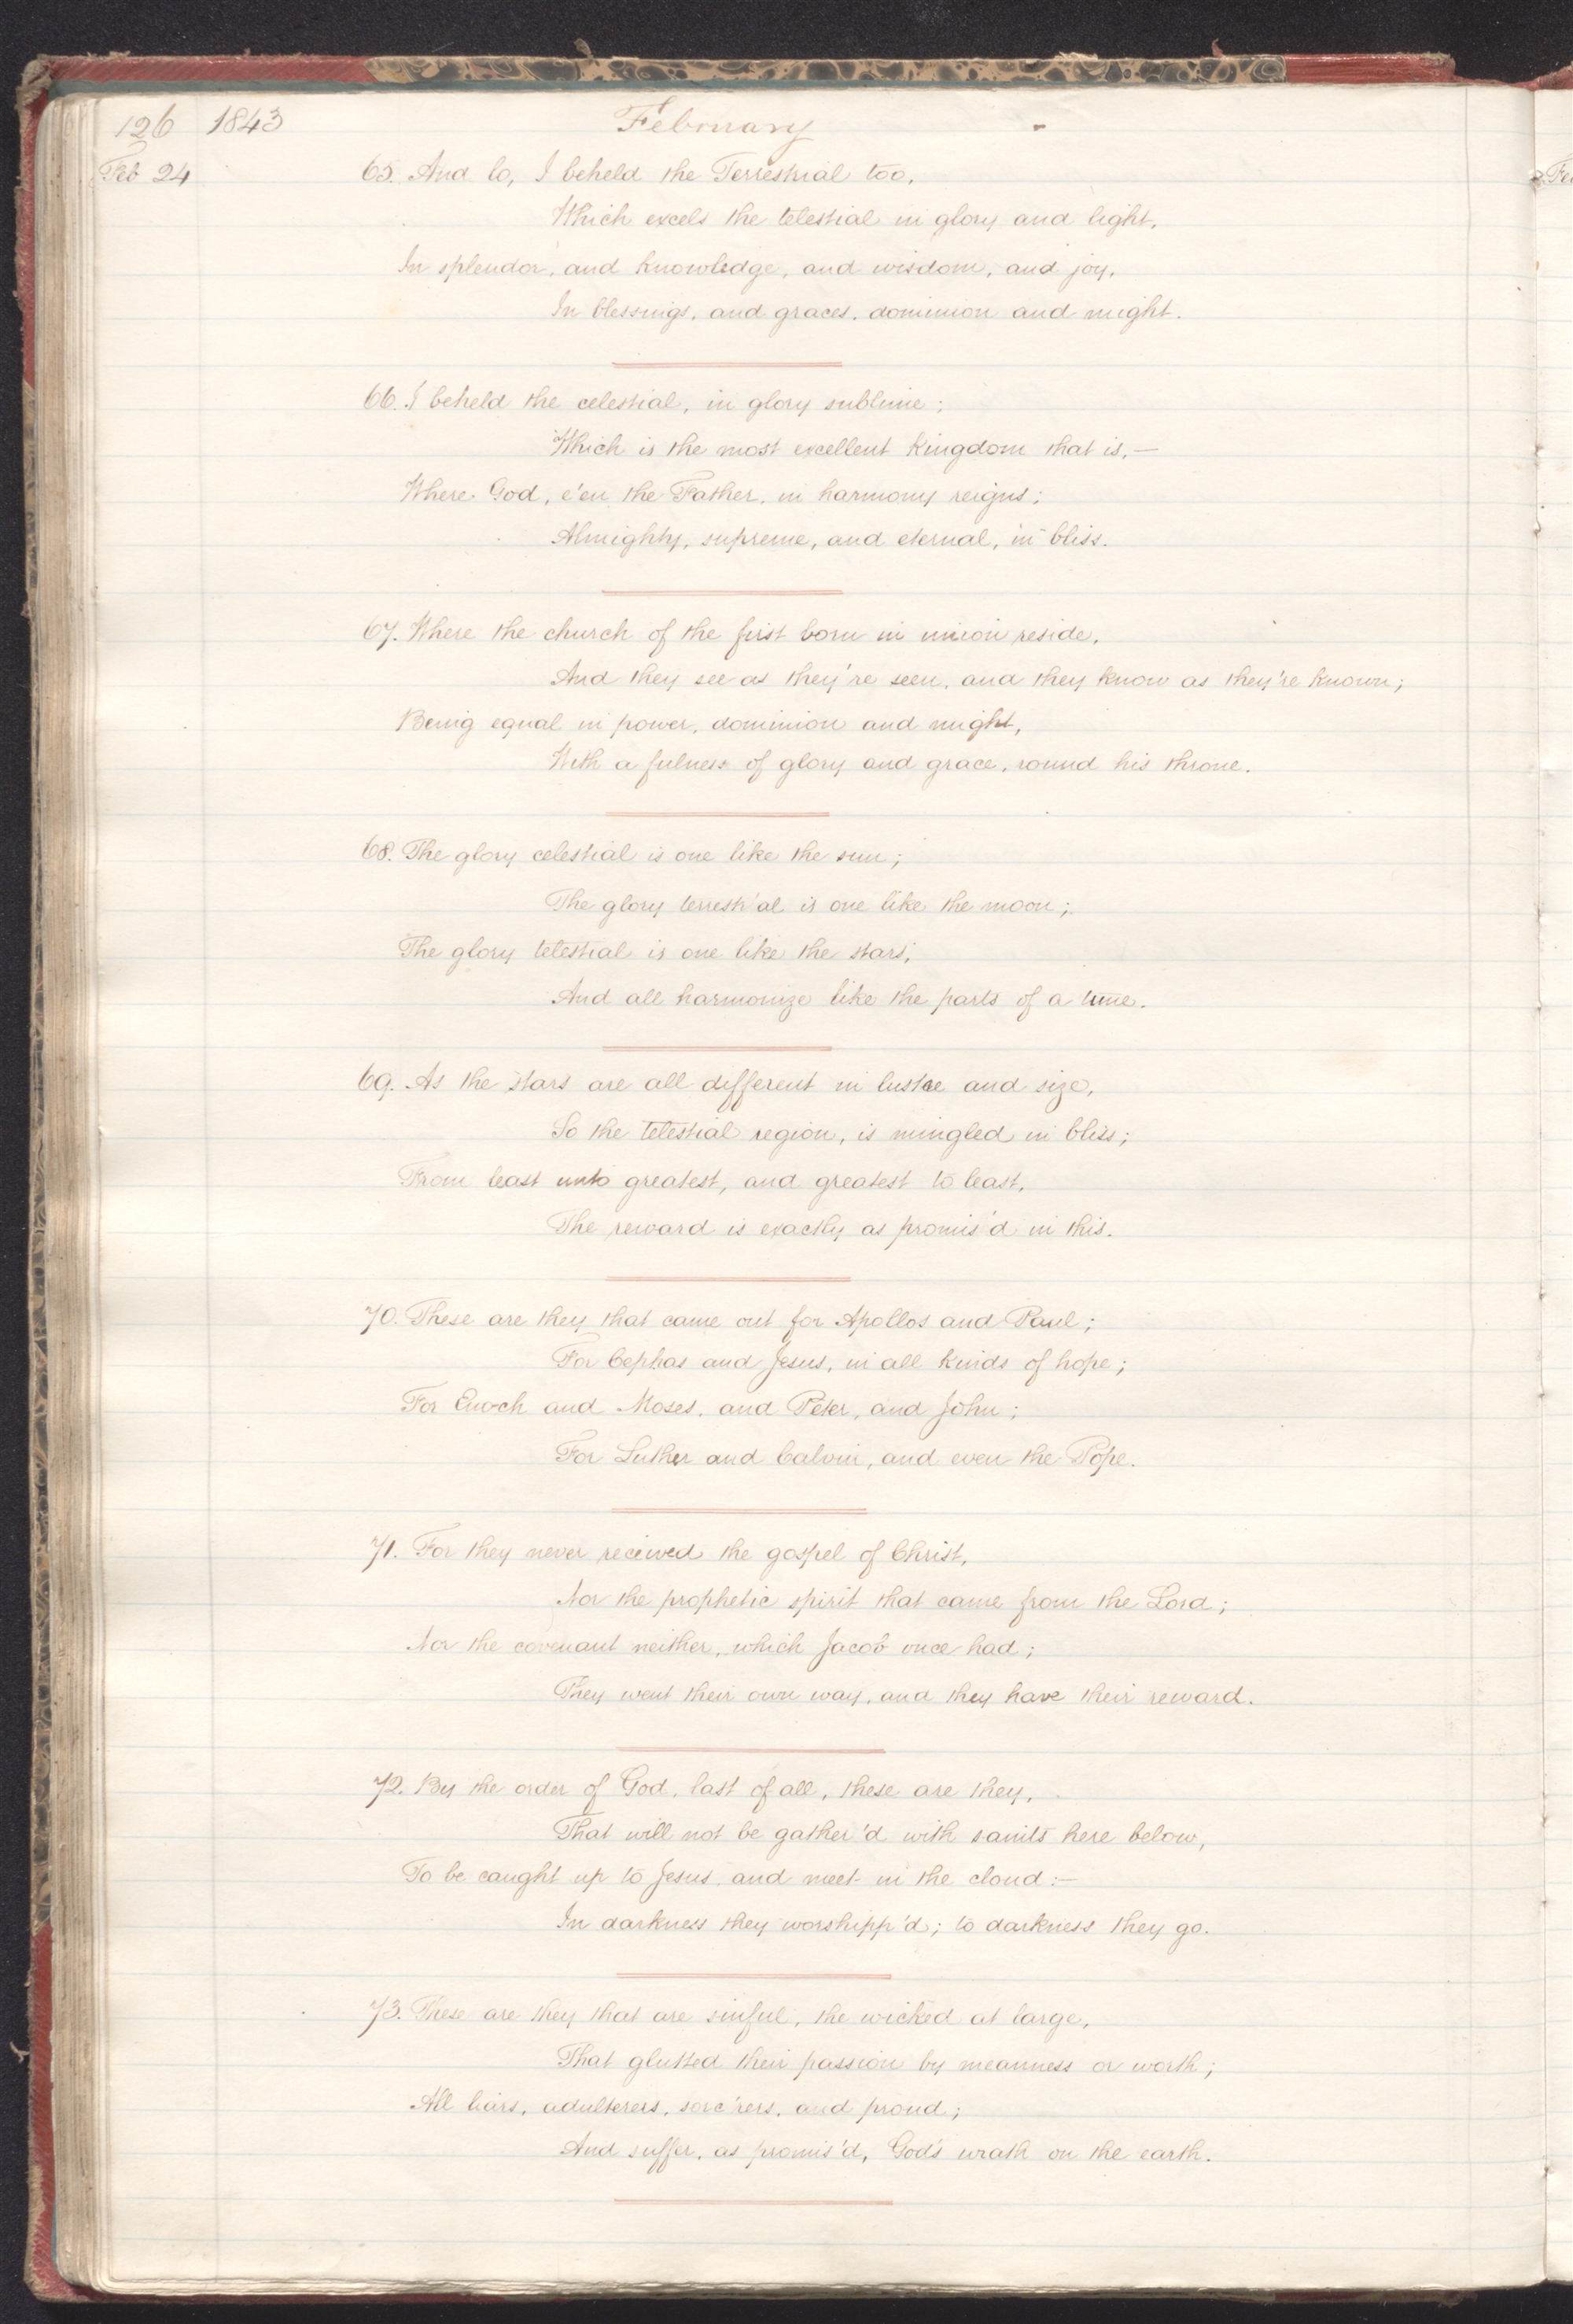 126 1843 February
Feb 24 65. And lo, I beheld the Terrestrial too,
Which excels the telestial in glory and light,
In splendor, and knowledge, and wisdom, and joy,
In blessings, and graces, dominion and might.
66. I beheld the celestial, in glory sublime;
Which is the most excellent kingdom that is,—
Where God, e'en the Father, in harmony reigns;
Almighty, supreme, and eternal, in bliss.
67. Where the church of the first born in union reside,
And they see as they're seen, and they know as they're known;
Being equal in power, dominion and might,
With a fulness of glory and grace, round his throne.
68. The glory celestial is one like the sun;
The glory terrestr'al is one like the moon;
The glory telestial is one like the stars;
And all harmonize like the parts of a tune.
69. As the stars are all different in lustre and size,
So the telestial region, is mingled in bliss;
From least unto greatest, and greatest to least,
The reward is exactly as promis'd in this.
70. These are they that came out for Apollos and Paul;
For Cephas and Jesus, in all kinds of hope;
For Enoch and Moses, and Peter, and John;
For Luther and Calvin, and even the Pope.
71. For they never received the gospel of Christ,
Nor the prophetic spirit that came from the Lord;
Nor the covenant neither, which Jacob once had;
They went their own way, and they have their reward.
72. By the order of God, last of all, these are they,
That will not be gather'd with saints here below,
To be caught up to Jesus, and meet in the cloud:—
In darkness they worshipp'd; to darkness they go.
73. These are they that are sinful, the wicked at large,
That glutted their passion by meanness or worth;
All liars, adulterers, sorc'rers, and proud;
And suffer, as promis'd, God's wrath on the earth.